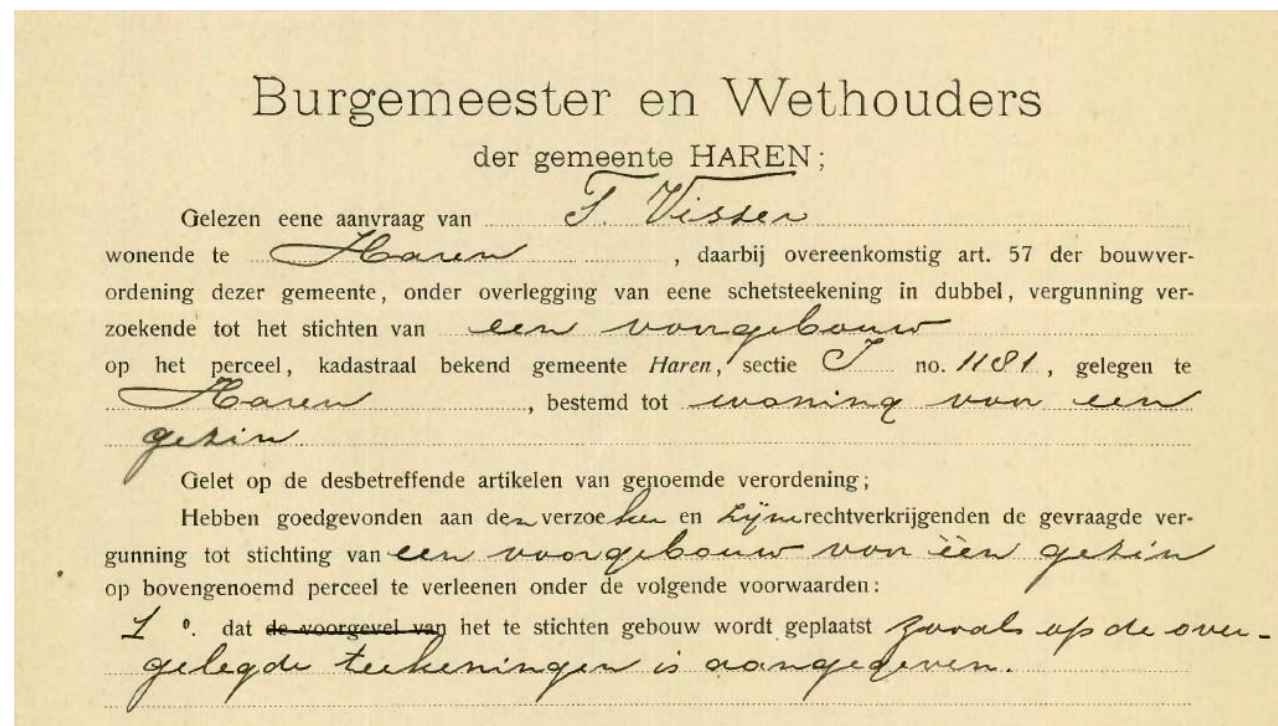 Burgemeester en Wethouders
der gemeente HAREN;
Gelezen eene aanvraag van Visser
wonende te Haren, daarbij overeenkomstig art. 57 der bouwver-
ordening dezer gemeente, onder overlegging van eene schetsteekening in dubbel, vergunning ver-
zoekende tot het stichten van een voorgebouw
op het perceel, kadastraal bekend gemeente Haren, sectie no. 1181, gelegen te
Haren, bestemd tot woning voor een
gezin
Gelet op de desbetreffende artikelen van genoemde verordening;
Hebben goedgevonden aan den verzoeker en zijne rechtverkrijgenden de gevraagde ver-
gunning tot stichting van een voorgebouw voor èèn gezin
op bovengenoemd perceel te verleenen onder de volgende voorwaarden:
1 °. dat de voorgevel van het te stichten gebouw wordt geplaatst zooals op de over-
gelegde teekeningen is aangegeven.